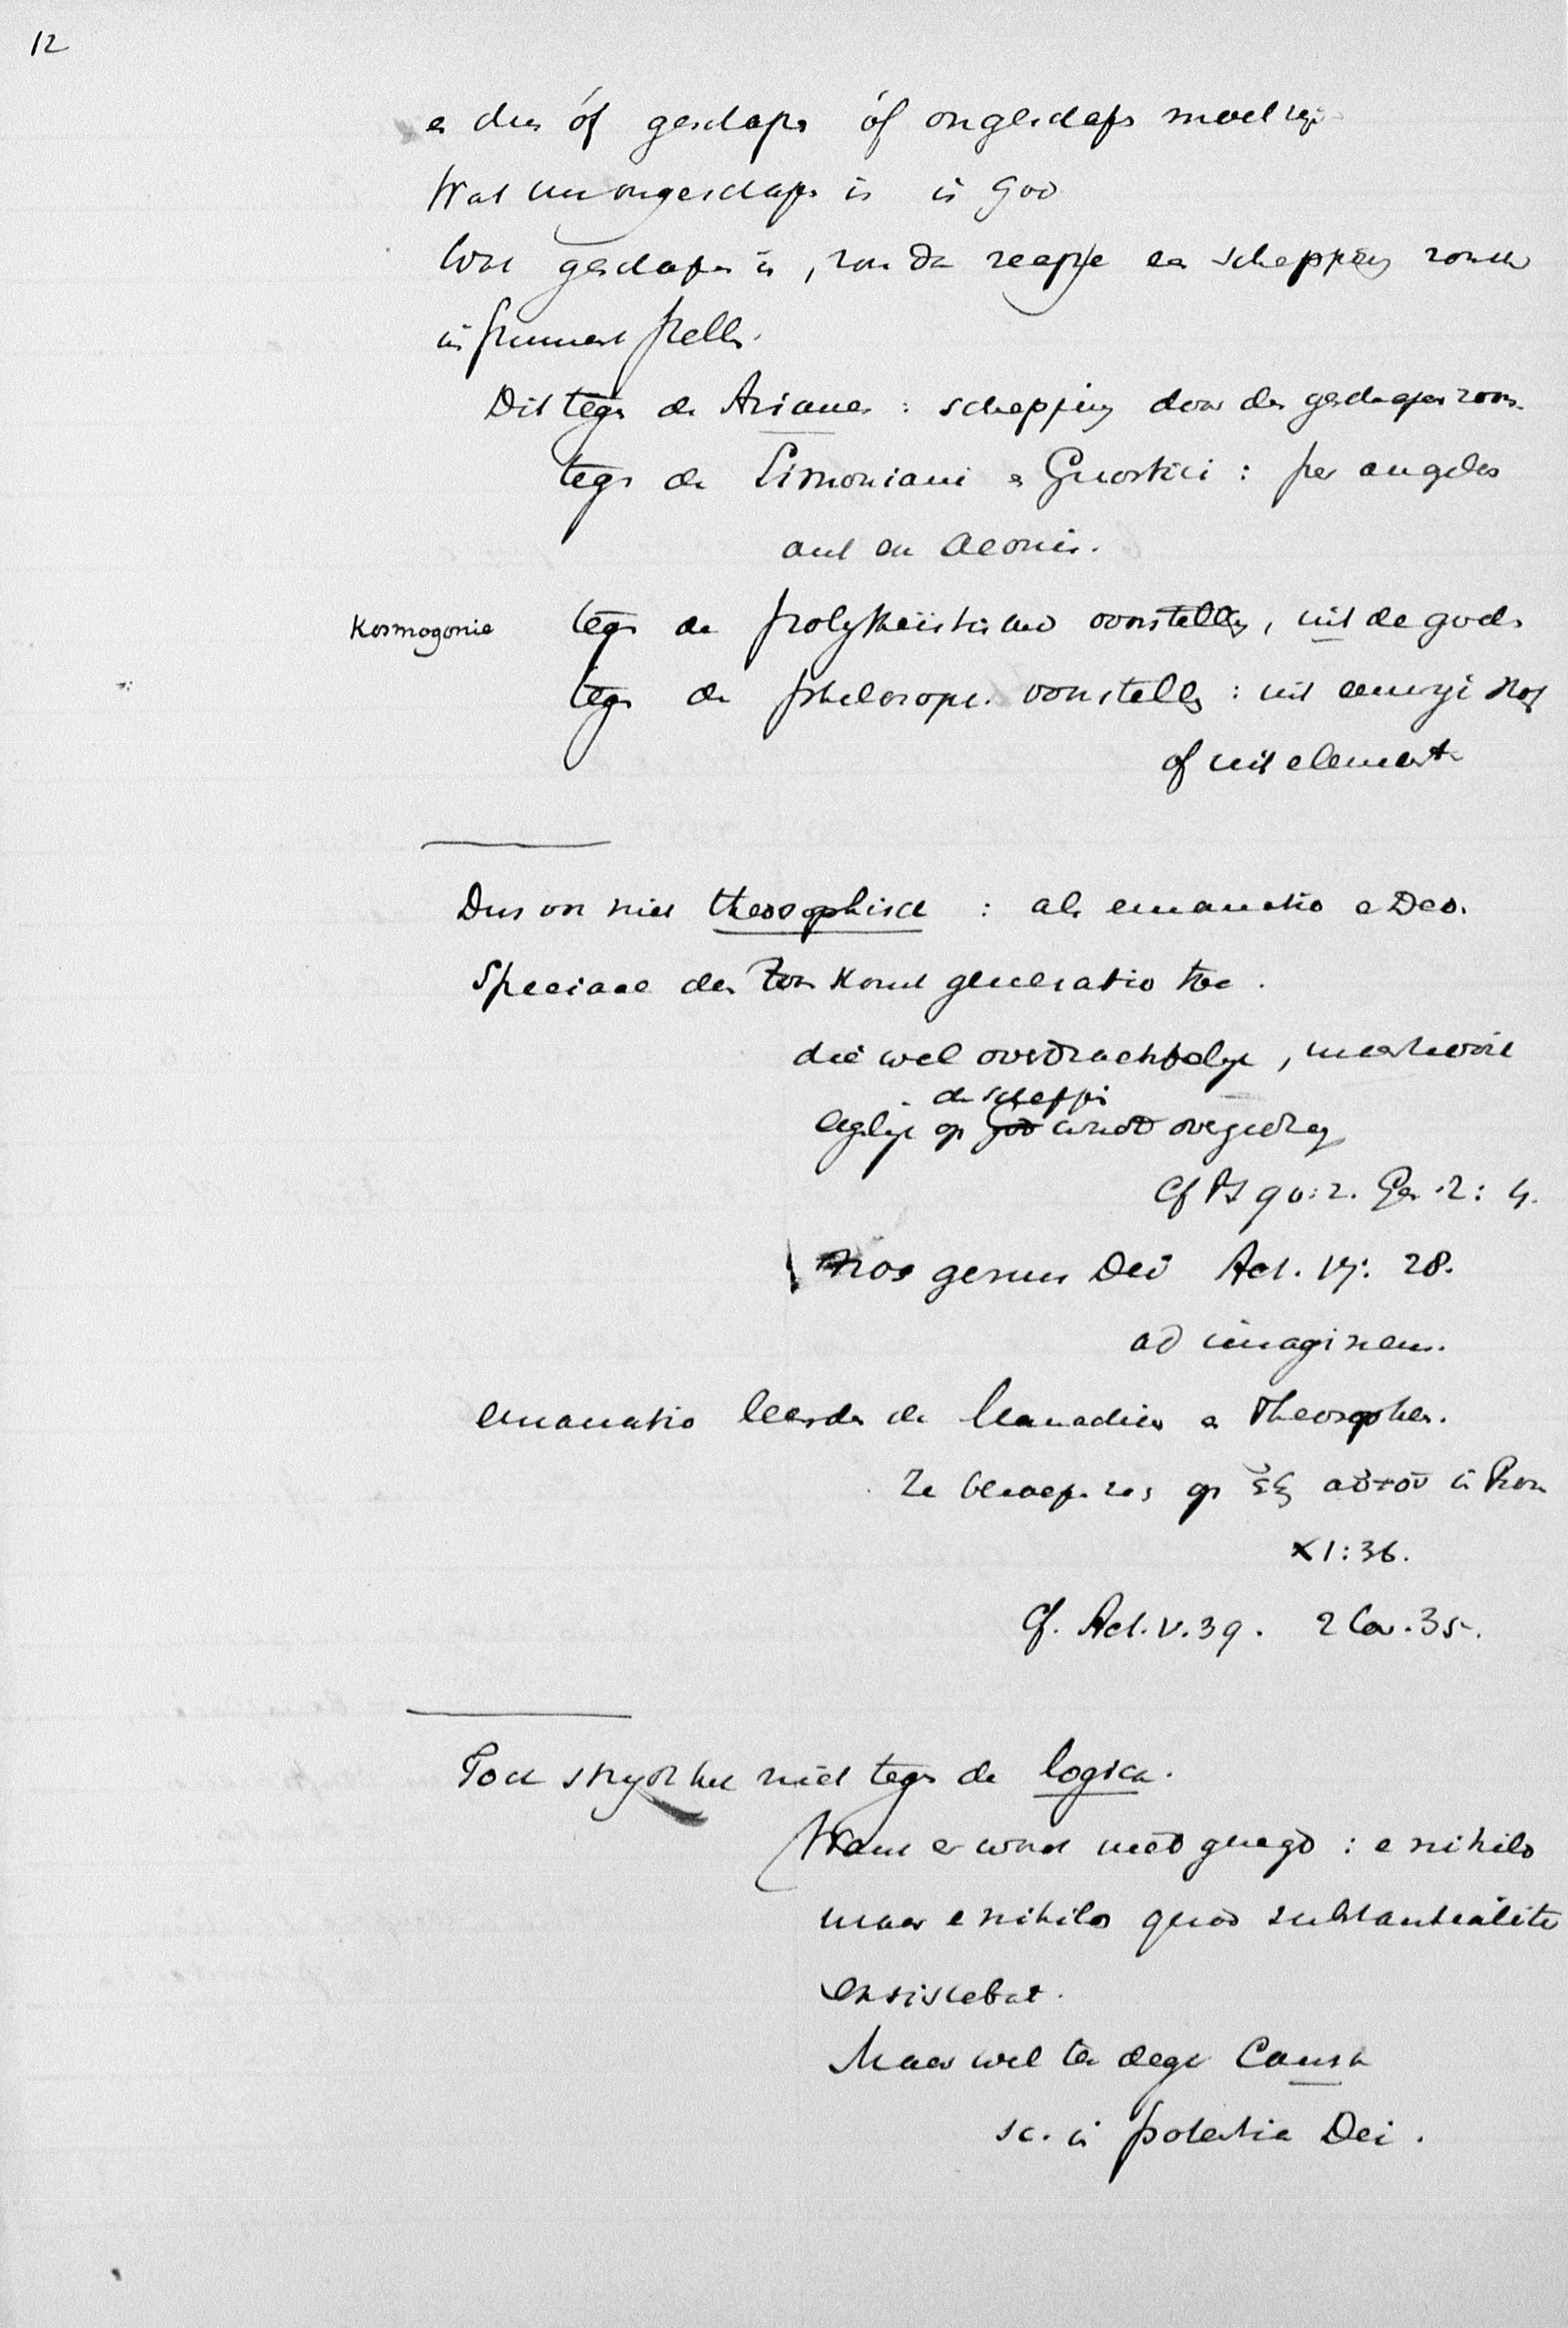 12
en dus óf geschapen óf ongeschapen moet zijn
Wat nu ongeschapen is is God
Wat geschapen is, zou dan reeds een schepping zonder
instrument stellen.
Dit tegen de Arianen : schepping door den geschapen zoon.
tegen de Simoniani en Gnostici : per angelos
aut an Aeonis.
Kosmogonie tegen de polytheïstische voorstelling, uit de goden
tegen de philosoph. voorstelling : uit eeuwige stof
of uit elementen
Dus ook niet theosophisch : als emanatio e Deo.
Speciaal den Zoon komt generatio toe.
die wel overdrachtelijk, maar nooit
de schepping
eigenlijk op God wordt overgedragen
Cf Ps 90:2. Gen. 2: 4.
nos genus Dei Act. 17: 28.
ad imaginem.
emanatio leerden de Manicheën en Theosophen.
Ze beroepen zich op ἐξ αὐτοῦ in Rom
XI:36.
Cf. Act. V.39. 2 Cor. 3 5.
Toch strijdt het niet tegen de logica.
Want er wordt niet gezegd : e nihilo
maar e nihilo quod substantialiter
existebat.
Maar wel ter dege Causa
sc. in potentia Dei.